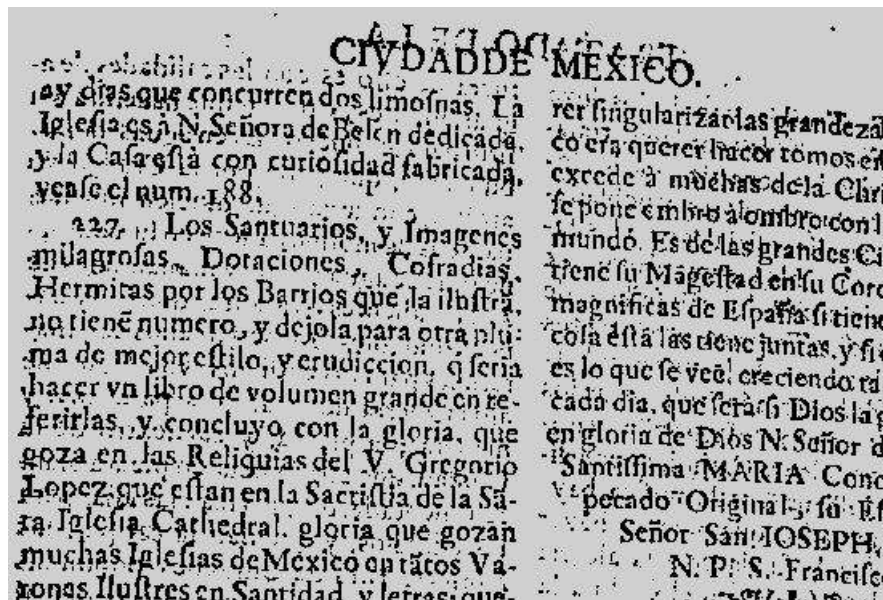 CIVDAD DE MEXICO.
ay dias que concurren dos limosnas. La
Iglesia es à N. Señora de Belen dedicada,
y la Casa està con curiosidad fabricada,
vease el num. 188.
227. Los Santuarios, y Imagenes
milagrosas, Dotaciones, Cofradias,
Hermitas por los Barrios que la ilustrã,
no tienẽ numero, y dejola para otra plu-
ma de mejor estilo, y erudiccion, q̃ seria
hacer vn libro de volumen grande en re-
ferirlas, y concluyo con la gloria, que
goza en las Reliquias del V. Gregorio
Lopez que estan en la Sacristia de la Sã-
ta Iglesia Cathedral. gloria que gozan
muchas Iglesias de Mexico en tãtos Va-
rones Ilustres en Santidad, y letras, que
rer singularizar las grandeza
co era querer hacer tomos en
excede à muchas de la
se pone ombro à ombro con
mundo. Es de las grandes
tiene su Magestad en su
magnificas de España si
cosa està las tiene juntas, y si
es lo que se vee, creciendo
cada dia, que serà si Dios la
en gloria de Dios N. Señor
Santissima MARIA
pecado Original, su
Señor San IOSEPH,
N. P. S. Francisc